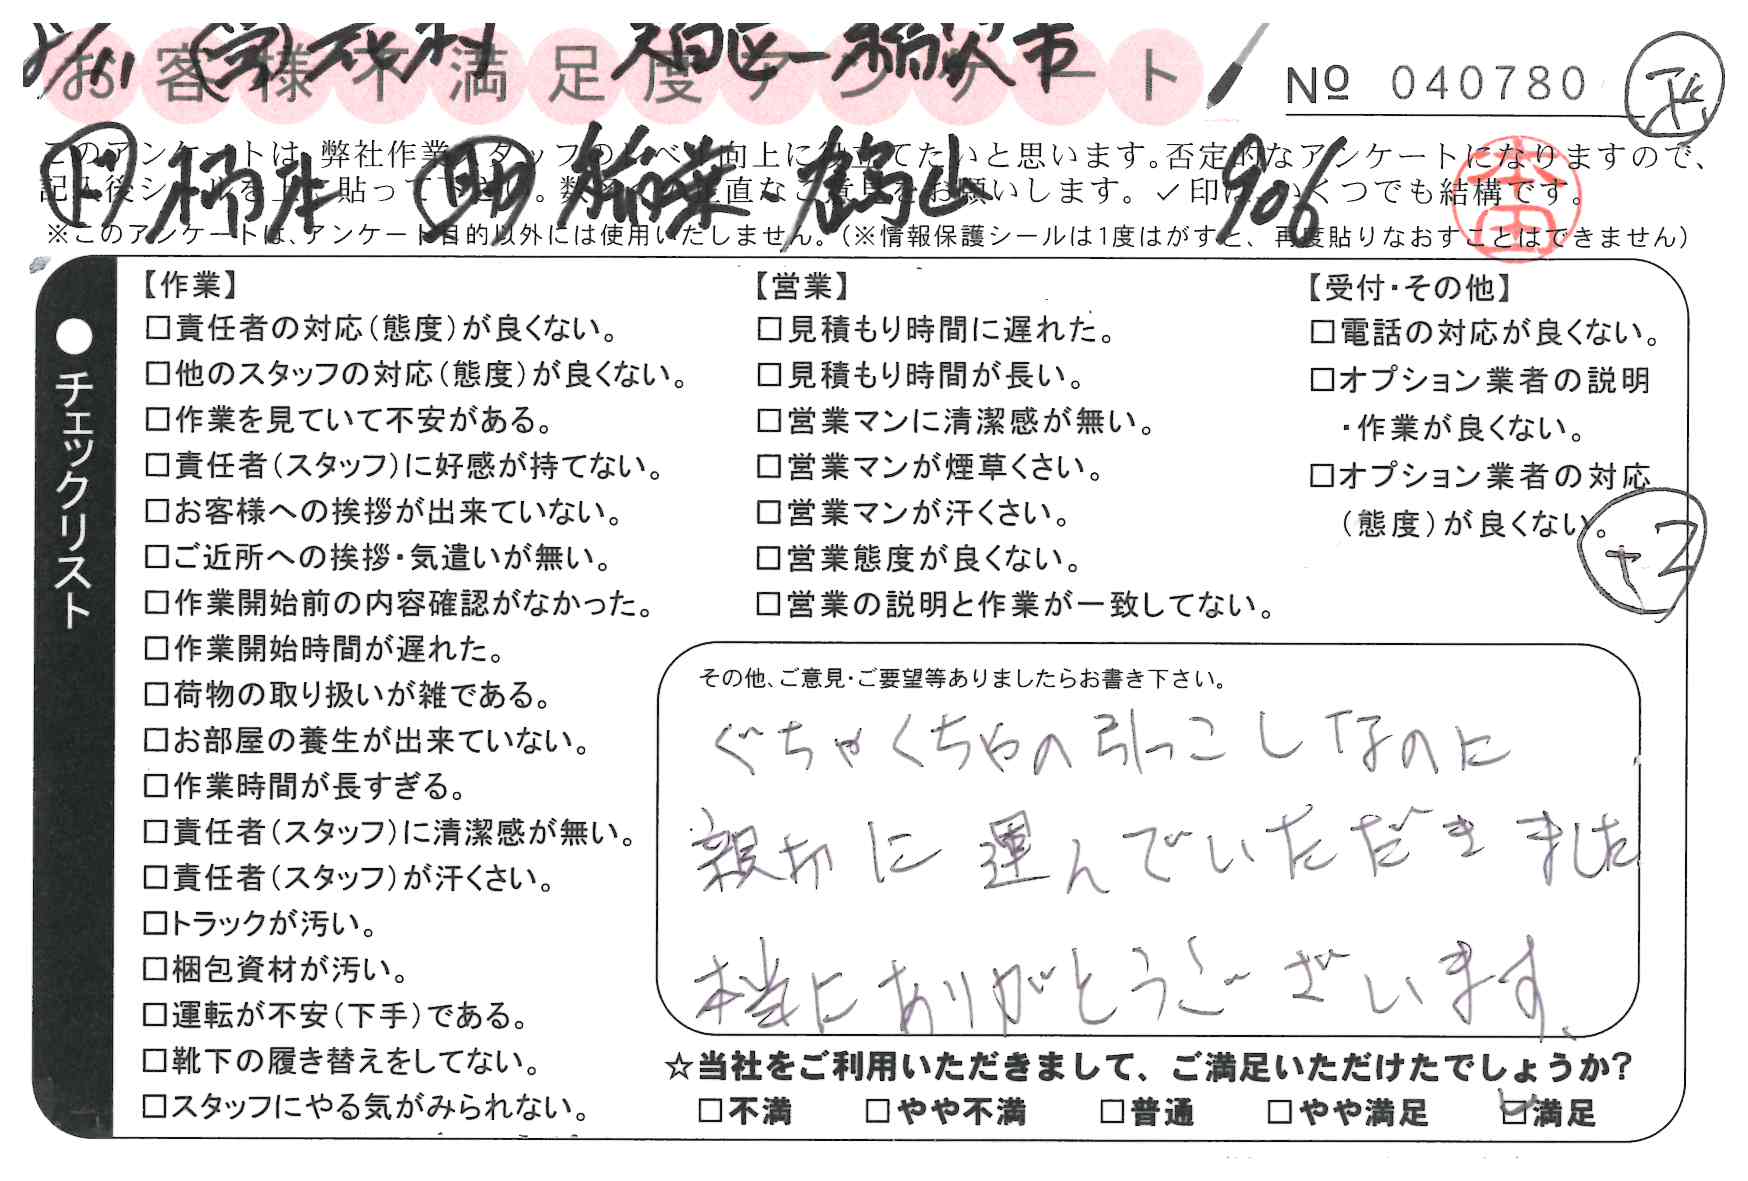 お客様不満足度アンケート
№ 040780
このアンケートは、弊社作業スタッフのレベル向上に役立てたいと思います。否定的なアンケートになりますので、
記入後シールを上に貼って下さい。数多くの正直なご意見をお願いします。✓印は、いくつでも結構です。
※このアンケートは、アンケート目的以外には使用いたしません。(※情報保護シールは1度はがすと、再度貼りなおすことはできません)
柿本 稲葉 鶴山 906
本田
●チェックリスト
【作業】
□責任者の対応(態度)が良くない。
□他のスタッフの対応(態度)が良くない。
□作業を見ていて不安がある。
□責任者(スタッフ)に好感が持てない。
□お客様への挨拶が出来ていない。
□ご近所への挨拶・気遣いが無い。
□作業開始前の内容確認がなかった。
□作業開始時間が遅れた。
□荷物の取り扱いが雑である。
□お部屋の養生が出来ていない。
□作業時間が長すぎる。
□責任者(スタッフ)に清潔感が無い。
□責任者(スタッフ)が汗くさい。
□トラックが汚い。
□梱包資材が汚い。
□運転が不安(下手)である。
□靴下の履き替えをしてない。
□スタッフにやる気がみられない。
【営業】
□見積もり時間に遅れた。
□見積もり時間が長い。
□営業マンに清潔感が無い。
□営業マンが煙草くさい。
□営業マンが汗くさい。
□営業態度が良くない。
□営業の説明と作業が一致してない。
【受付・その他】
□電話の対応が良くない。
□オプション業者の説明
・作業が良くない。
□オプション業者の対応
(態度)が良くない。
+2
その他、ご意見・ご要望等ありましたらお書き下さい。
ぐちゃくちゃの引っこしなのに
親切に運んでいただきました
本当にありがとうございます、
☆当社をご利用いただきまして、ご満足いただけたでしょうか?
□不満 □やや不満 □普通 □やや満足 ☑満足